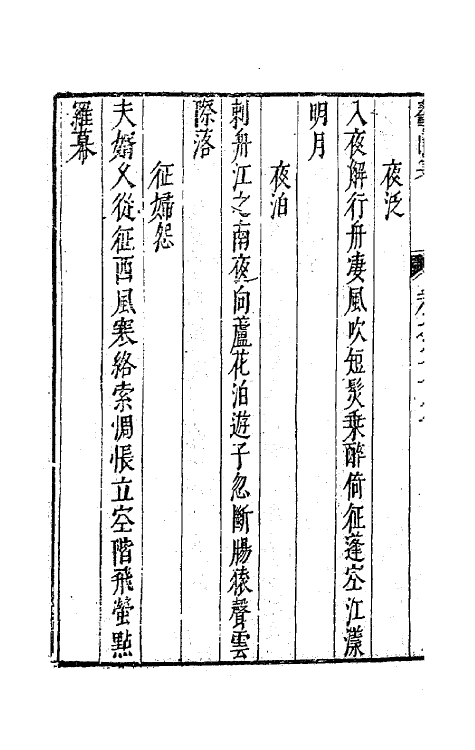 夜泛
入夜解行舟凄風吹短髮乗醉倚征蓬空江漾
明月
夜泊
刺舟江之南夜向蘆花泊遊子忽斷腸猿聲雲
際落
征婦怨
夫婿久從征西風寒絡索惆悵立空階飛螢點
羅幕